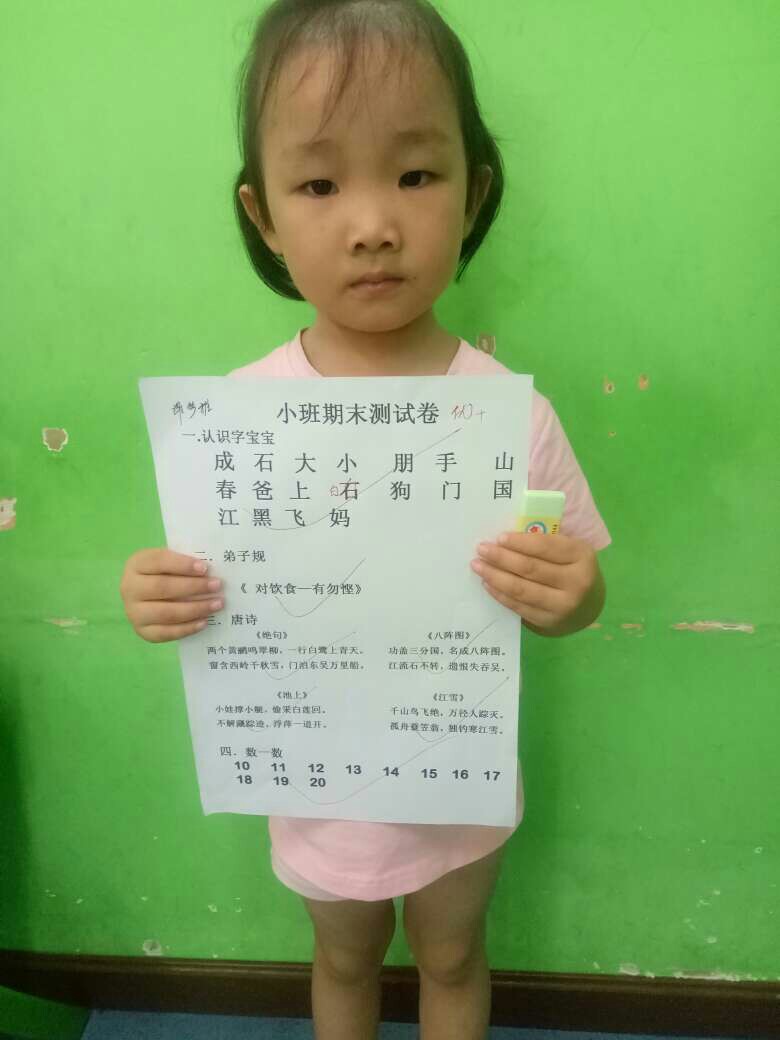 小班期末测试卷 优+
一.认识字宝宝
成 石 大 小 朋 手 山
春 爸 上 石 狗 门 国
江 黑 飞 妈
二. 弟子规
《 对饮食—有勿悭》
三. 唐诗
《绝句》
两个黄鹂鸣翠柳，一行白鹭上青天。
窗含西岭千秋雪，门泊东吴万里船。
《八阵图》
功盖三分国，名成八阵图。
江流石不转，遗恨失吞吴。
《池上》
小娃撑小艇，偷采白莲回。
不解藏踪迹，浮萍一道开。
《江雪》
千山鸟飞绝，万径人踪灭。
孤舟蓑笠翁，独钓寒江雪。
四. 数一数
10 11 12 13 14 15 16 17
18 19 20